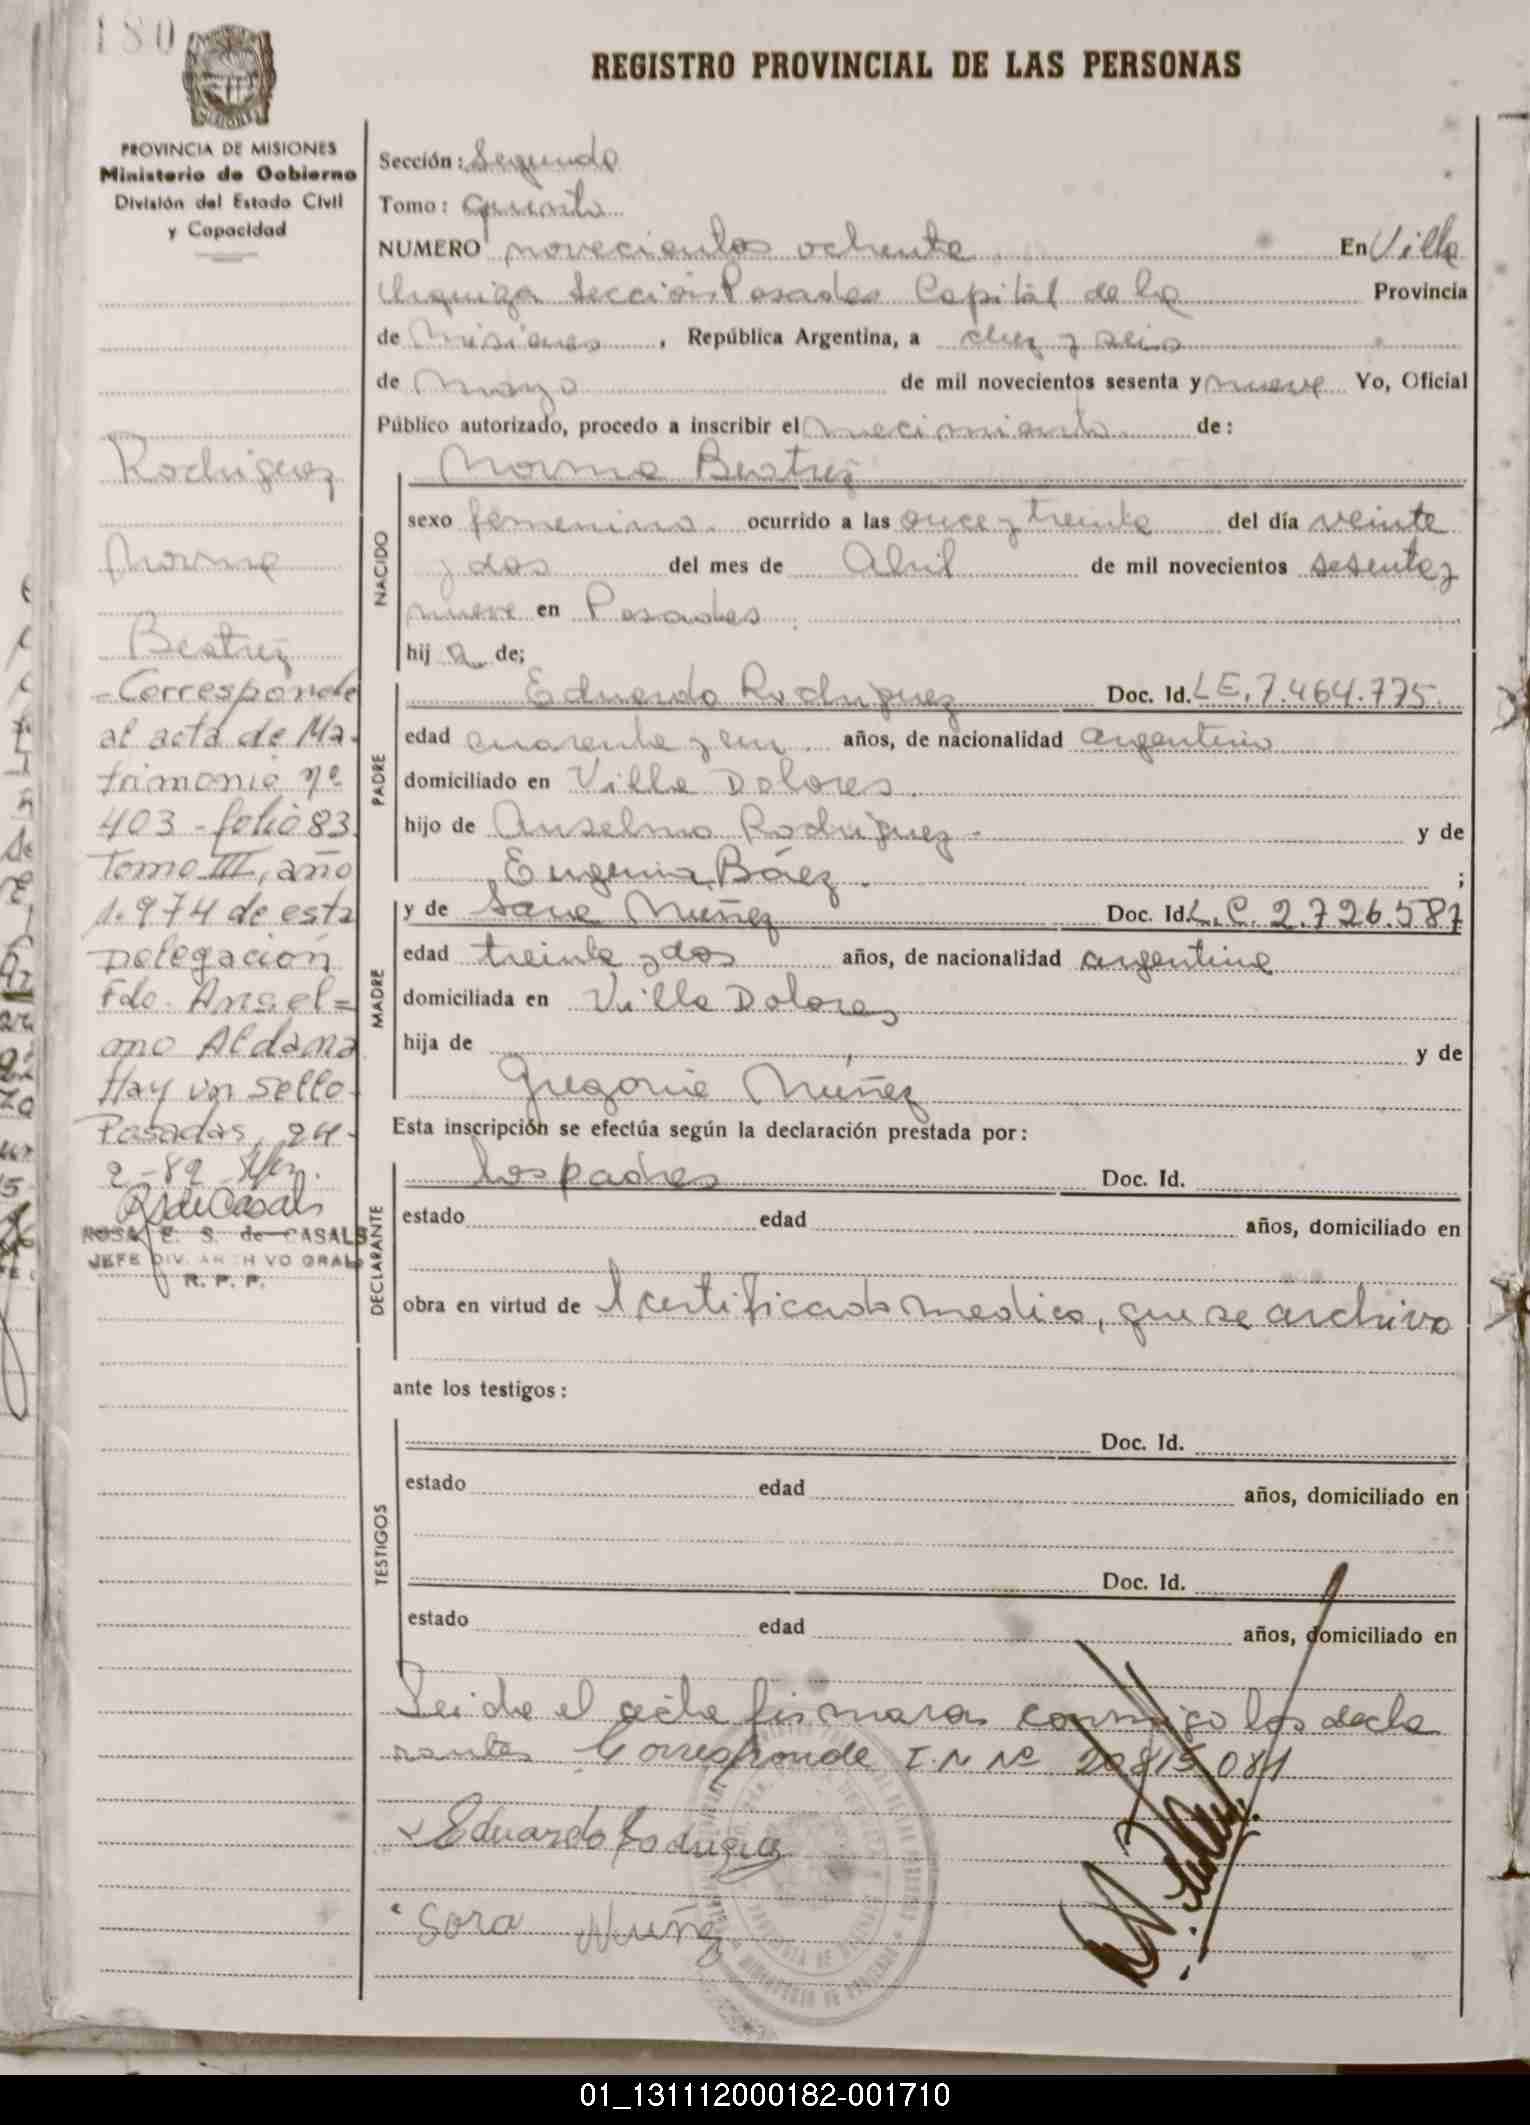 180
REGISTRO PROVINCIAL DE LAS PERSONAS
PROVINCIA DE MISIONES
Ministerio de Gobierno
División del Estado Civil
y Capacidad
Rodriguez
Norma
Beatriz
- Corresponde
al acta de Ma-
trimonio nº
403 - folio 83
Tomo III, año
1.974 de esta
Delegación
Fdo. Ansel=
mo Aldana
Hay un sello-
Posadas, 24-
2-82
R S de Casals
ROSA E. S. de CASALS
JEFE DIV. ARCHIVO GRAL
R. P. P.
Sección: Segunda
Tomo: Quinto
NUMERO novecientos ochenta En Villa
Urquiza Sección Posadas Capital de la Provincia
de Misiones, República Argentina, a diez y seis
de Mayo de mil novecientos sesenta y nueve Yo, Oficial
Público autorizado, procedo a inscribir el nacimiento de:
NACIDO
Norma Beatriz
sexo femenino. ocurrido a las once y treinta del día veinte
y dos del mes de Abril de mil novecientos sesenta y
nueve en Posadas.
hij a de;
PADRE
Eduardo Rodriguez Doc. Id. L.E. 7.464.775.
edad cuarenta y un años, de nacionalidad argentino
domiciliado en Villa Dolores.
hijo de Anselmo Rodriguez - y de
Eugenia Báez. ;
MADRE
y de Sara Nuñez Doc. Id. L.C. 2.726.587
edad treinta y dos años, de nacionalidad argentina
domiciliada en Villa Dolores
hija de y de
Gregoria Nuñez
Esta inscripción se efectúa según la declaración prestada por:
DECLARANTE
los padres Doc. Id.
estado edad años, domiciliado en
obra en virtud de certificado medico, que se archiva
ante los testigos:
TESTIGOS
Doc. Id.
estado edad años, domiciliado en
Doc. Id.
estado edad años, domiciliado en
Leida el acta firmaron conmigo los decla
rantes. Corresponde I.N Nº 20815.081
Eduardo Rodriguez
Sara Nuñez
PROVINCIA DE MISIONES
MINISTERIO DE GOBIERNO
01_131112000182-001710